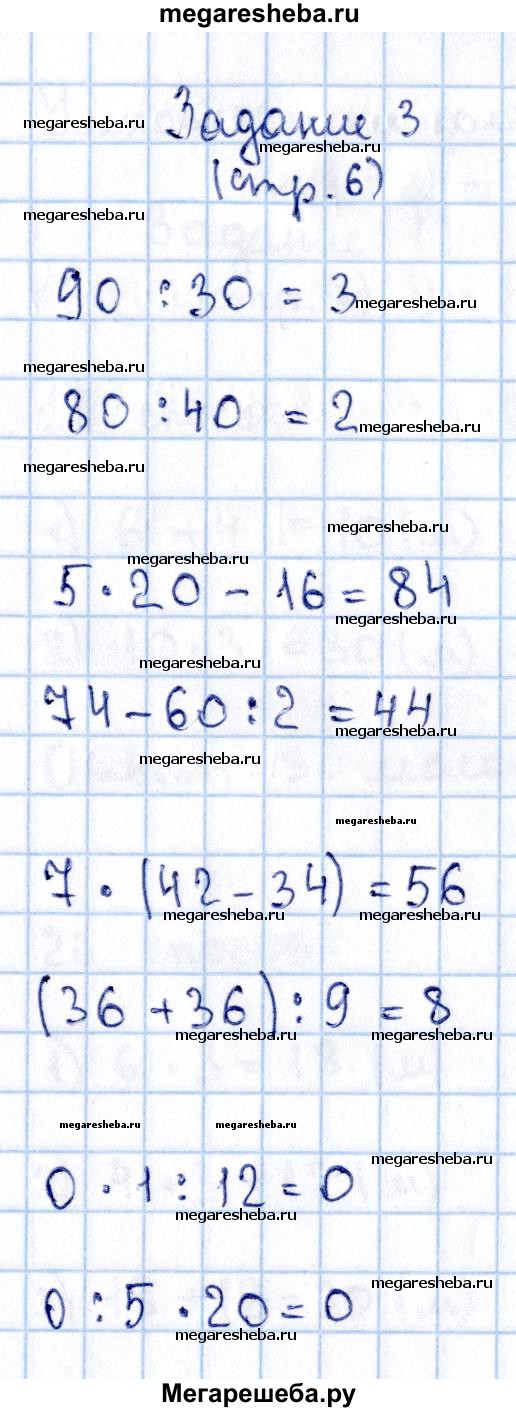 megaresheba.ru
megaresheba.ru Задание 3
megaresheba.ru
(стр. 6)
megaresheba.ru
90 : 30 = 3 megaresheba.ru
megaresheba.ru
80 : 40 = 2 megaresheba.ru
megaresheba.ru
megaresheba.ru
megaresheba.ru
5 · 20 - 16 = 84
megaresheba.ru
megaresheba.ru
74 - 60 : 2 = 44
megaresheba.ru
megaresheba.ru
megaresheba.ru
7 · (42 - 34) = 56
megaresheba.ru megaresheba.ru
(36 + 36) : 9 = 8
megaresheba.ru megaresheba.ru
megaresheba.ru megaresheba.ru
megaresheba.ru
0 · 1 : 12 = 0
megaresheba.ru
megaresheba.ru
0 : 5 · 20 = 0
megaresheba.ru
Мегарешеба.ру